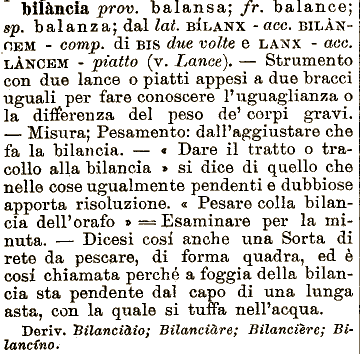 bilància prov. balansa; fr. balance;
sp. balanza; dal lat. BÍLANX - acc. BILÀN-
CEM - comp. di BIS due volte e LANX - acc.
LÀNCEM - piatto (v. Lance). — Strumento
con due lance o piatti appesi a due bracci
uguali per fare conoscere l'uguaglianza o
la differenza del peso de' corpi gravi.
— Misura; Pesamento: dall'aggiustare che
fa la bilancia. — « Dare il tratto o tra-
collo alla bilancia » si dice di quello che
nelle cose ugualmente pendenti e dubbiose
apporta risoluzione. « Pesare colla bilan-
cia dell'orafo » = Esaminare per la mi-
nuta. — Dicesi cosí anche una Sorta di
rete da pescare, di forma quadra, ed è
cosí chiamata perché a foggia della bilan-
cia sta pendente dal capo di una lunga
asta, con la quale si tuffa nell'acqua.
Deriv. Bilanciàio; Bilanciàre; Bilancière; Bi-
lancíno.